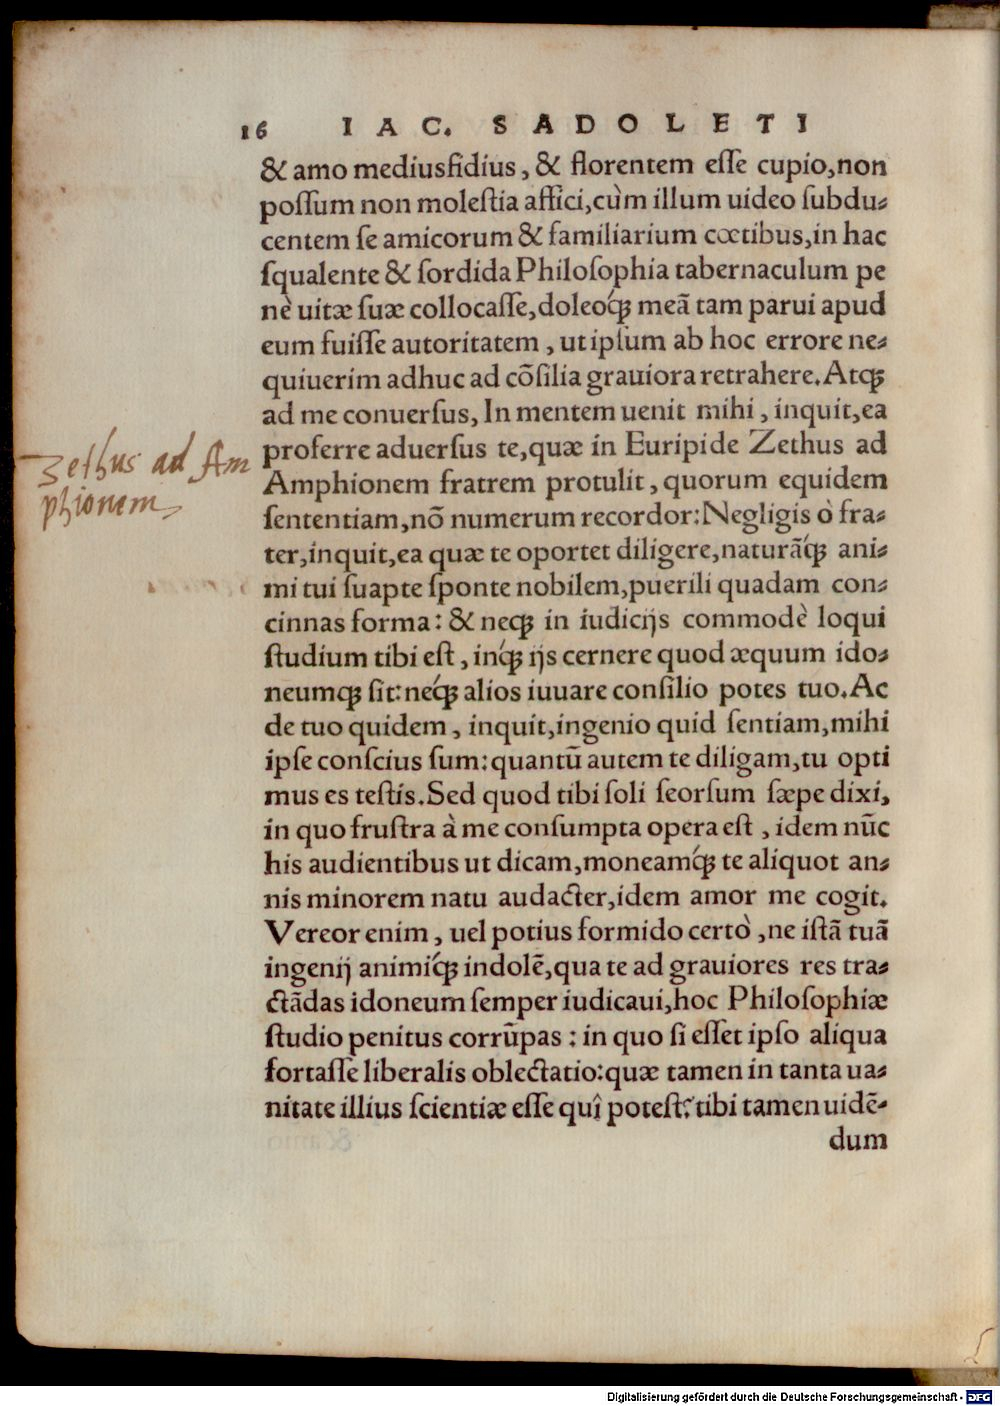 16 IAC. SADOLETI
& amo mediusfidius, & florentem eſſe cupio,non
poſſum non moleſtia affici,cùm illum uideo ſubdu-
centem ſe amicorum & familiarium cœtibus,in hac
ſqualente & ſordida Philoſophia tabernaculum pe
nè uitæ ſuæ collocaſſe,doleoq́ꝫ meã tam parui apud
eum fuiſſe autoritatem, ut ipſum ab hoc errore ne-
quiuerim adhuc ad cõſilia grauiora retrahere.Atqꝫ
ad me conuerſus, In mentem uenit mihi, inquit,ea
proferre aduerſus te,quæ in Euripide Zethus ad
Zethus ad Am
Amphionem fratrem protulit, quorum equidem
phionem
ſententiam,nõ numerum recordor:Negligis ò fra-
ter,inquit,ea quæ te oportet diligere,naturãq́ꝫ ani-
mi tui ſuapte ſponte nobilem,puerili quadam con-
cinnas forma: & neqꝫ in iudicijs commodè loqui
ſtudium tibi eſt, inq́ꝫ ijs cernere quod æquum ido-
neumqꝫ ſit:neq́ꝫ alios iuuare conſilio potes tuo.Ac
de tuo quidem, inquit,ingenio quid ſentiam,mihi
ipſe conſcius ſum:quantũ autem te diligam,tu opti
mus es teſtis.Sed quod tibi ſoli ſeorſum ſæpe dixi,
in quo fruſtra à me conſumpta opera eſt, idem nũc
his audientibus ut dicam,moneamq́ꝫ te aliquot an-
nis minorem natu audacter,idem amor me cogit.
Vereor enim, uel potius formido certò,ne iſtã tuã
ingenij animiq́ꝫ indolẽ,qua te ad grauiores res tra-
ctãdas idoneum ſemper iudicaui,hoc Philoſophiæ
ſtudio penitus corrũpas: in quo ſi eſſet ipſo aliqua
fortaſſe liberalis oblectatio:quæ tamen in tanta ua-
nitate illius ſcientiæ eſſe quî poteſt? tibi tamen uidẽ-
dum
Digitalisierung gefördert durch die Deutsche Forschungsgemeinschaft - DFG